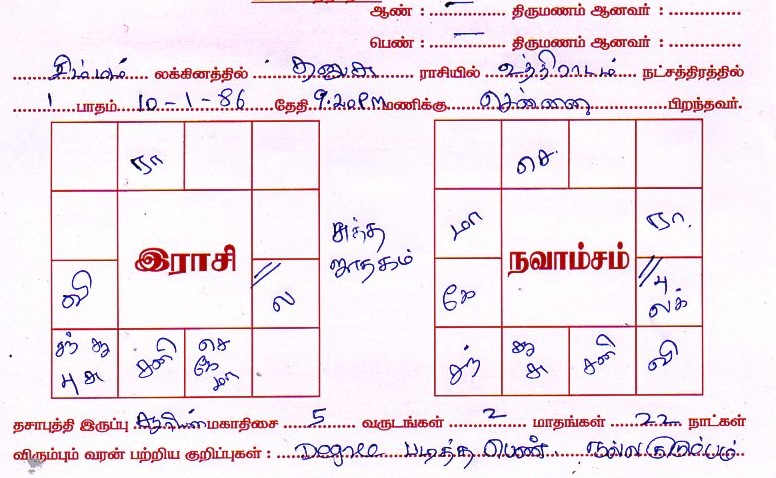 ஆண் : ............ திருமணம் ஆனவர் : ............
பெண் : ............ திருமணம் ஆனவர் : ............
சிம்மம் லக்கினத்தில் தனுசு ராசியில் உத்திராடம் நட்சத்திரத்தில்
1 பாதம் 10-1-86 தேதி 9.20PM மணிக்கு சென்னை பிறந்தவர்.
ரா செ
சுத்த மா ரா.
இராசி ஜாதகம் நவாம்சம்
வி ல கே பு லக்
சந் சூ சனி செ சந் சூ சனி வி
பு சு கே மா சு
தசாபுத்தி இருப்பு சூரியன் மகாதிசை 5 வருடங்கள் 2 மாதங்கள் 22 நாட்கள்
விரும்பும் வரன் பற்றிய குறிப்புகள் : Degree படித்த பெண். நல்ல குடும்பம்